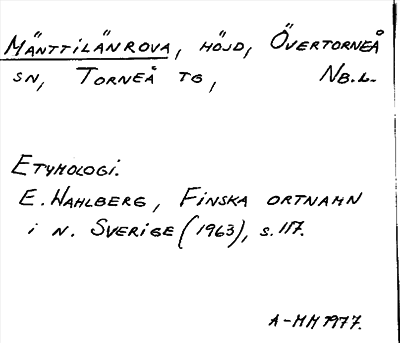 MÄNTTILÄNROVA, HÖJD, ÖVERTORNEÅ
SN, TORNEÅ TG, NB.L.
ETYMOLOGI.
E. WAHLBERG, FINSKA ORTNAMN
I N. SVERIGE (1963), S. 117.
A-MM 1977.